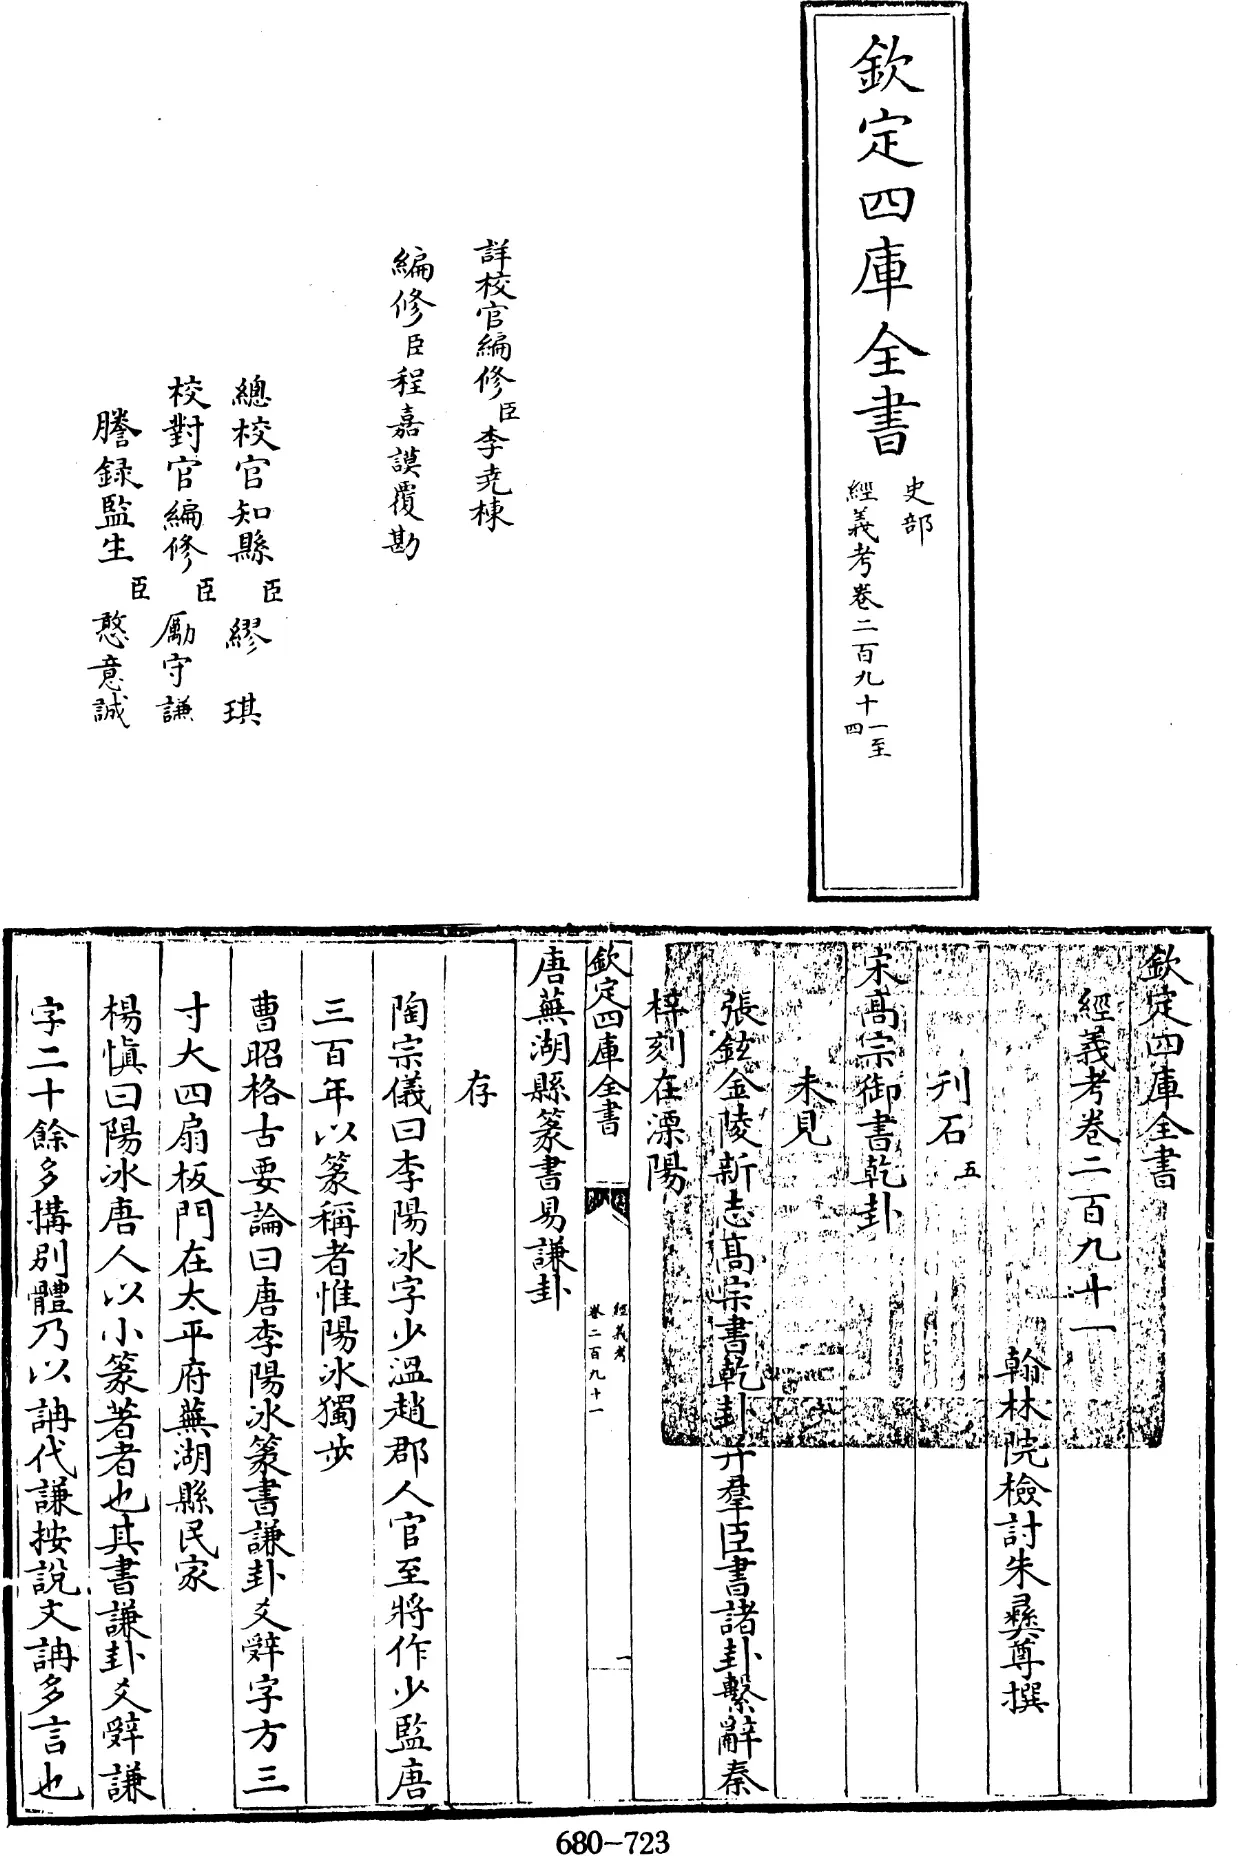 欽定四庫全書
史部
經義考卷二百九十一至
四
詳校官編修臣李堯棟
編修臣程嘉謨覆勘
總校官知縣臣繆琪
校對官編修臣勵守謙
謄録監生臣憨意誠
欽定四庫全書
經義考卷二百九十一
翰林院檢討朱彝尊撰
刋石五
宋髙宗御書乾卦
未見
張鉉金陵新志髙宗書乾卦并羣臣書諸卦繫辭秦
梓刻在溧陽
欽定四庫全書
經義考
卷二百九十一
一
唐蕪湖縣篆書易謙卦
存
陶宗儀曰李陽冰字少溫趙郡人官至將作少監唐
三百年以篆稱者惟陽冰獨步
曹昭格古要論曰唐李陽冰篆書謙卦爻辭字方三
寸大四扇板門在太平府蕪湖縣民家
楊慎曰陽冰唐人以小篆著者也其書謙卦爻辭謙
字二十餘多搆别體乃以詶代謙按說文詶多言也
680-723